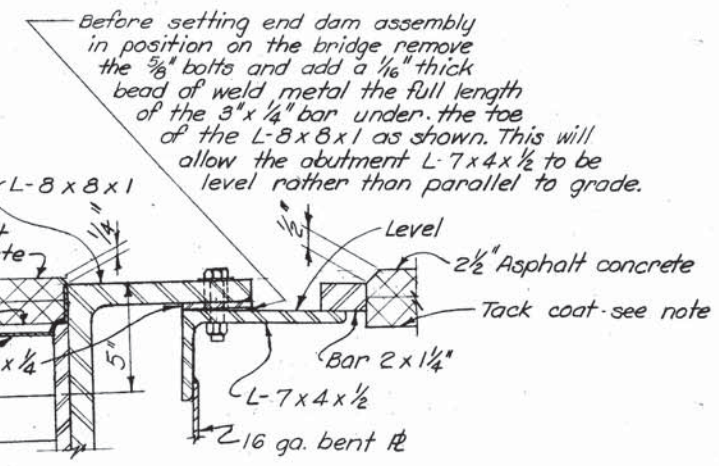 Before setting end dam assembly
in position on the bridge remove
the 5/8" bolts and add a 1/16" thick
bead of weld metal the full length
of the 3"x 1/4" bar under the toe
of the L-8x8x1 as shown. This will
allow the abutment L-7x4x1/2 to be
level rather than parallel to grade.
L-8 x 8 x 1
1/4"
1/2"
Level
2 1/2" Asphalt concrete
Tack coat-see note
x 1/4
5"
Bar 2 x 1 1/4"
L-7x4x1/2
16 ga. bent PL